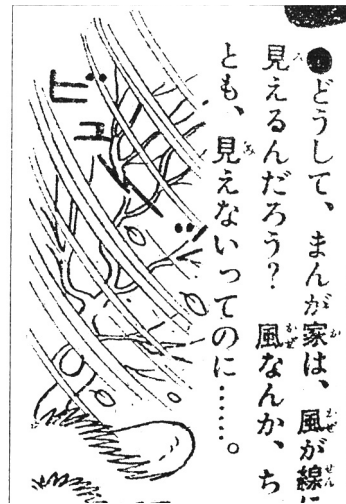 ●どうして、まんが家は、風が線に
見えるんだろう？　風なんか、ち
とも、見えないってのに……。
ビュッ